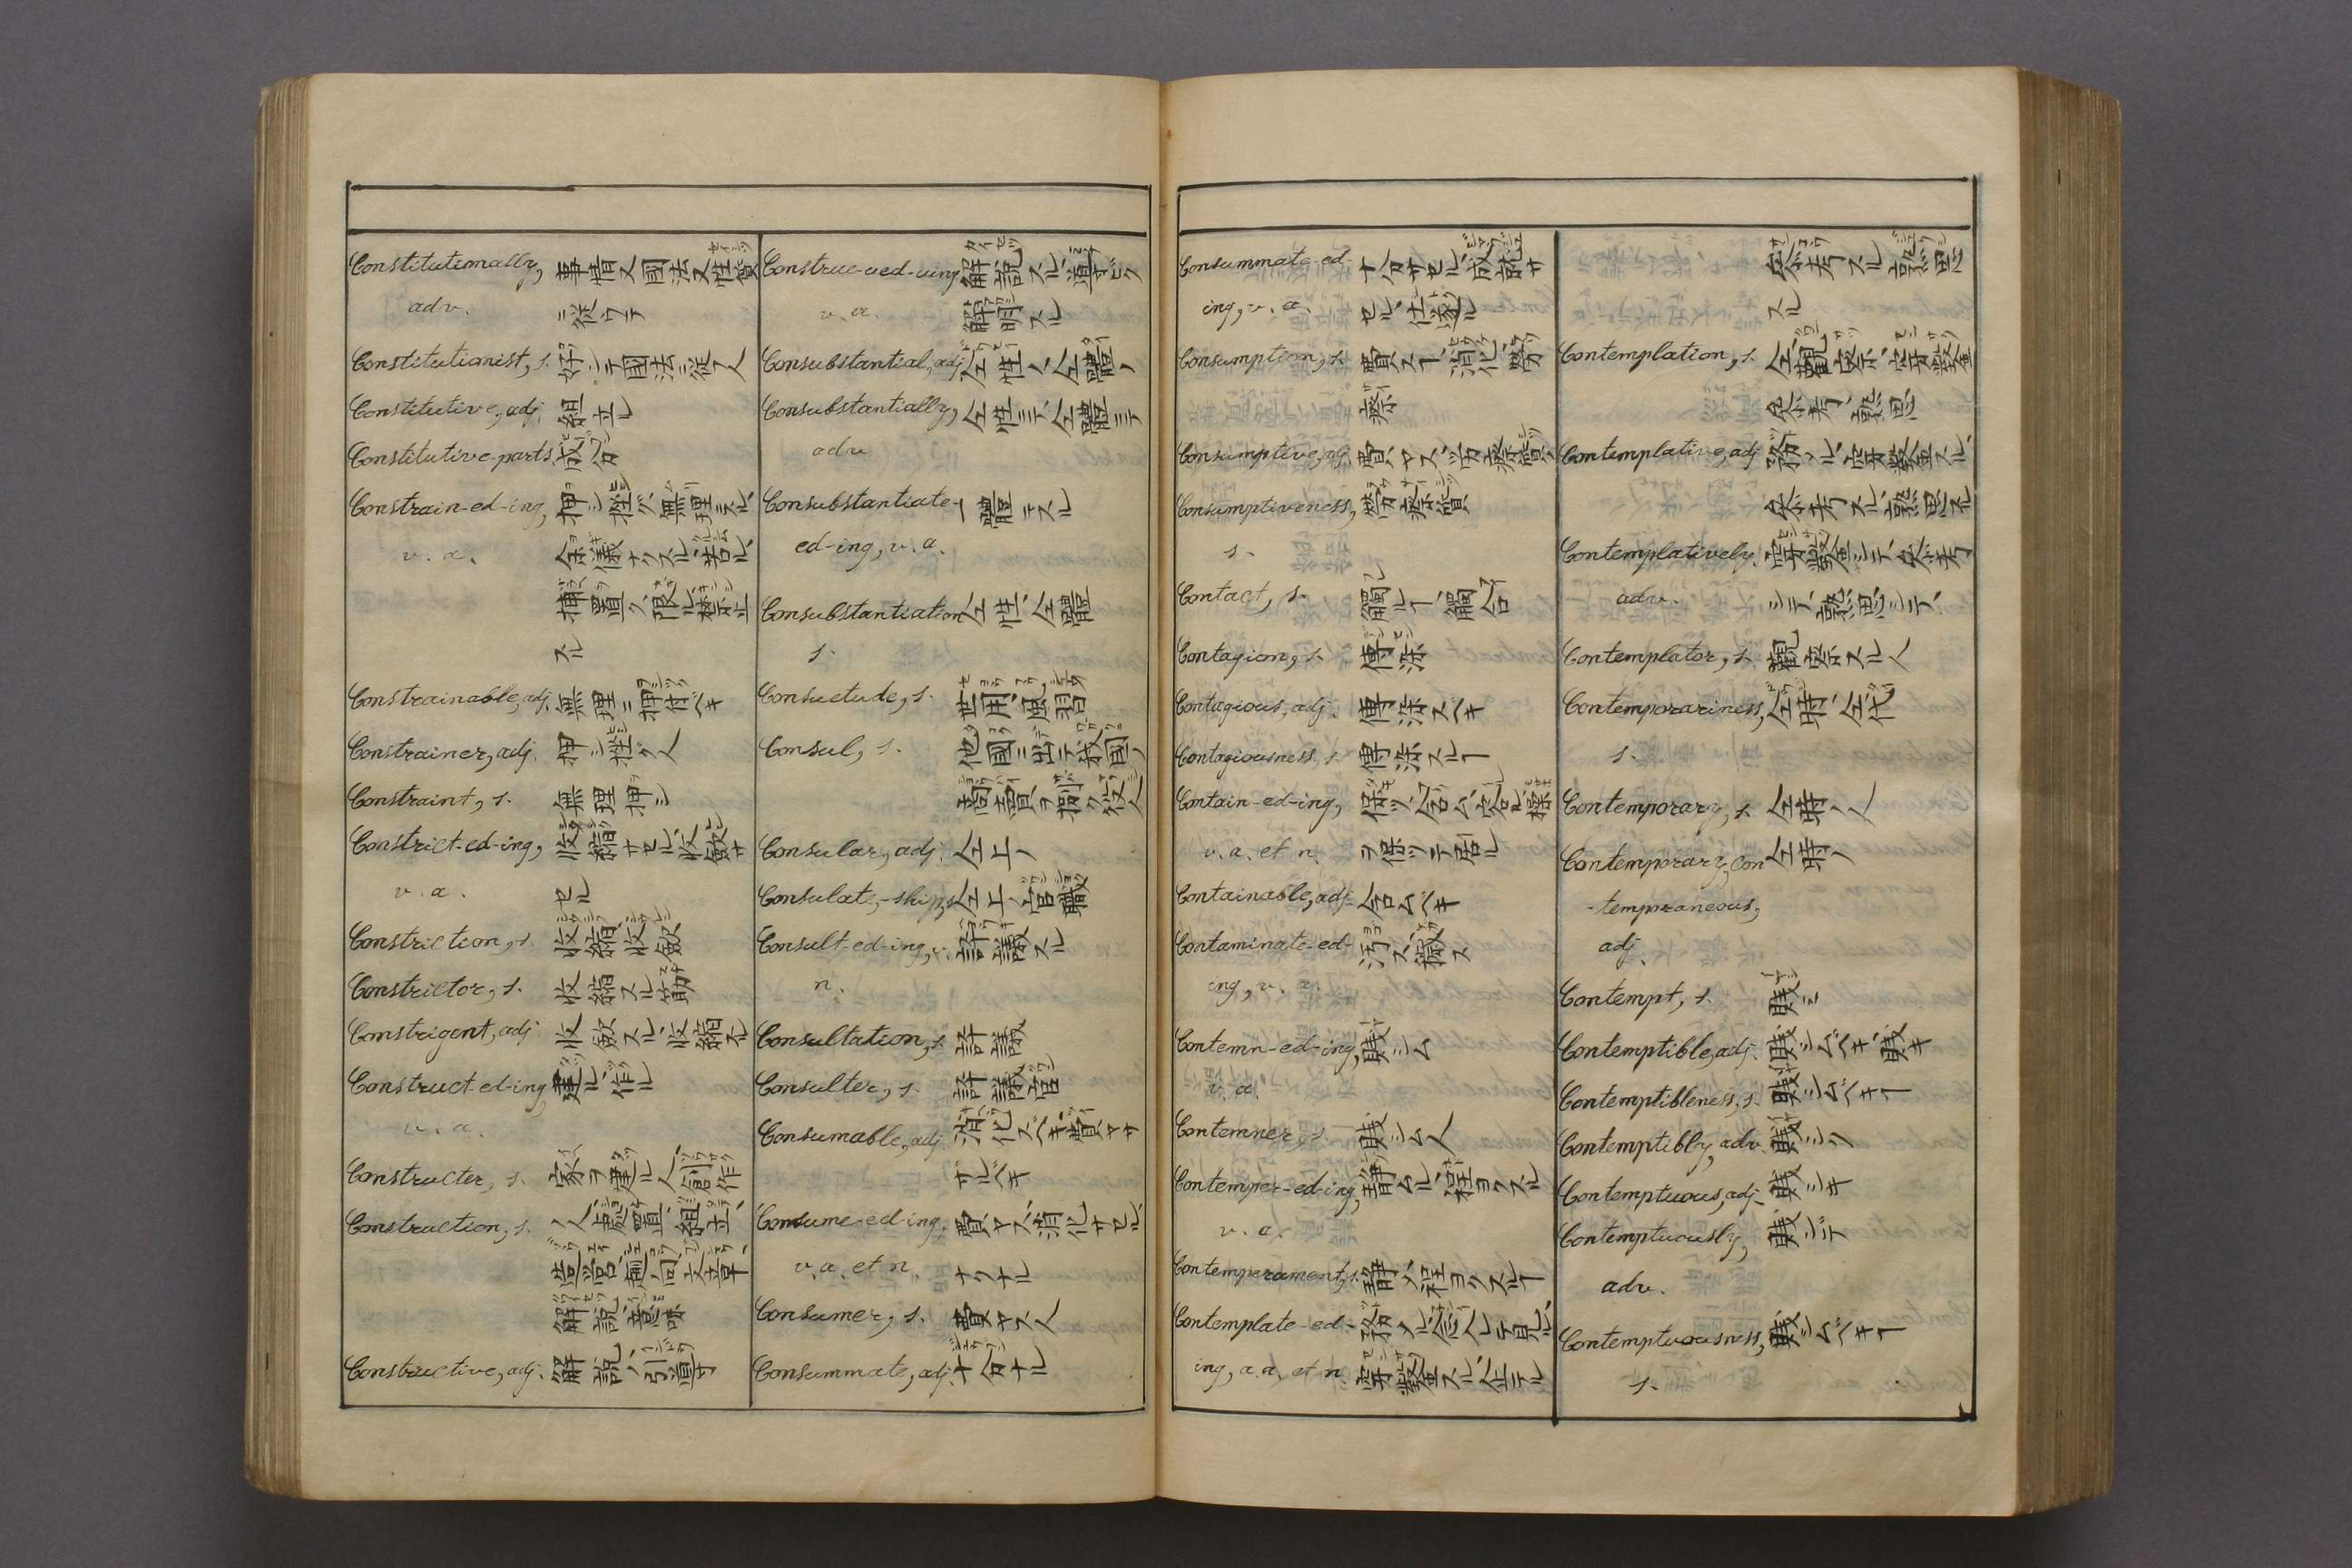 Constitutionally, 事情又國法又性質
adv. ニ従ウテ
Constitutionist, s. 好ンデ國法ニ従フ人
Constitutive, adj. 組立ル
Constitutive-parts 成分
Constrain-ed-ing, 押シ拉グ、無理ニスル、
v. a. 余儀ナクスル、
スル
Constrainable, adj. 無理ニ押付ベキ
Constrainer, adj. 押シ拉グ人
Constraint, s. 無理押シ
Constrict-ed-ing, 收縮サセル、收斂サ
v. a. セル
Constriction, s. 收縮、收斂
Constrictor, s. 收縮スル筋
Constrigent, adj. 收斂スル、收縮スル
Construct-ed-ing, 建ル、作ル
v. a.
Constructer, s. 家ヲ建ル人、創作
Construction, s. 人、處置、組立、
造営、
解説、意味
Constructive, adj. 解説ノ、引導ス
Construe-ued-uing 解説スル、
v. a. 解明スル
Consubstantial, adj. 仝性ノ、仝體ノ
Consubstantially, 仝性ニテ、仝體ニテ
adv
Consubstantiate- 一體ニスル
ed-ing, v. a.
Consubstantiation 仝性、仝體
s.
Consuetude, s. 世用、風習
Consul, s. 他國ニ出テ我國ノ
商賣ヲ捌ク役人
Consular, adj. 仝上ノ
Consulate,-ship, s. 仝上ノ官職
Consult-ed-ing, v. 評議スル
n.
Consultation, s. 評議
Consulter, s. 評議官
Consumable, adj. 消化スベキ、費ヤサ
ザルベキ
Consume-ed-ing, 費ヤス、消化サセル、
v. a. et n. ナクナル
Consumer, s. 費ヤス人
Consummate, adj. 十分ナル
Consummate-ed- 十分サセル、成就サ
ing, v. a. セル、仕遂ル
Consumption, s. 費ス﹁、消化、勞
瘵
Consumptive, adj. 費ヤス、労瘵質ノ
Consumptiveness, 労瘵質
s.
Contact, s. 觸ル﹁、觸合
Contagion, s. 傳染
Contagious, adj. 傳染スベキ
Contagiousness, s. 傳染スル﹁
Contain-ed-ing, 保ツ、含ム、
v. a. et n. ヲ保ツテ居ル
Containable, adj. 含ムベキ
Contaminate-ed- 汚ス、穢ス
ing, v. a.
Contemn-ed-ing, 賤シム
v. a.
Contemner, s. 賤シム人
Contemper-ed-ing, 静ムル、程ヨクスル
v. a.
Contemperament, s. 静メ、程ヨクスル﹁
Contemplate-ed-
ing, a. a. et n.
念考スル、熟思
スル
Contemplation, s.
念考、熟思
Contemplative, adj.
念考スル、熟思スル
Contemplatively.
adv. シテ、熟思シテ、
Contemplator, s. 觀察スル人
Contemporariness, 仝時、仝代
s.
Contemporary, s. 仝時ノ人
Contemporary, Con 仝時ノ
-temporaneous,
adj.
Contempt, s. 賤ミ
Contemptible, adj. 賤シムベキ、賤キ
Contemptibleness, s. 賤シムベキ﹁
Contemptibly, adv. 賤シク
Contemptuous, adj. 賤シキ
Contemptuously, 賤シテ
adv.
Contemptuousness, 賤シムベキ﹁
s.